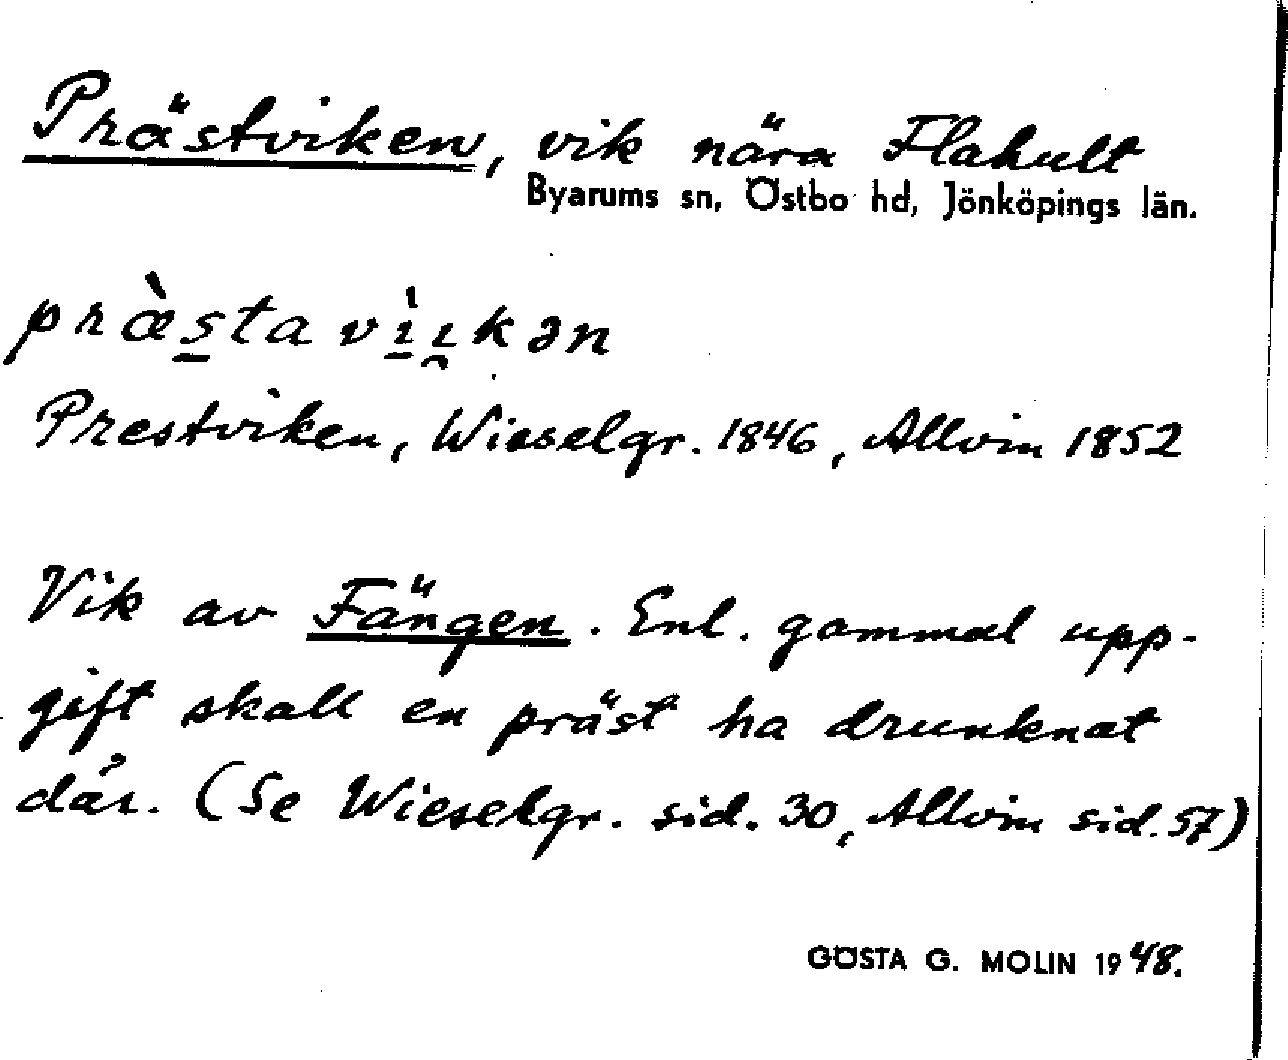 Prästviken, vik nära Flahult
Byarums sn, Östbo hd, Jönköpings län.
præ̀sta vìɪ̯kən
Prestviken, Wieselgr. 1846, Allvin 1852
Vik av Fängen. Enl. gammal upp-
gift skall en präst ha drunknat
där. (Se Wieselgr. sid. 30, Allvin sid. 57)
GÖSTA G. MOLIN 1948.